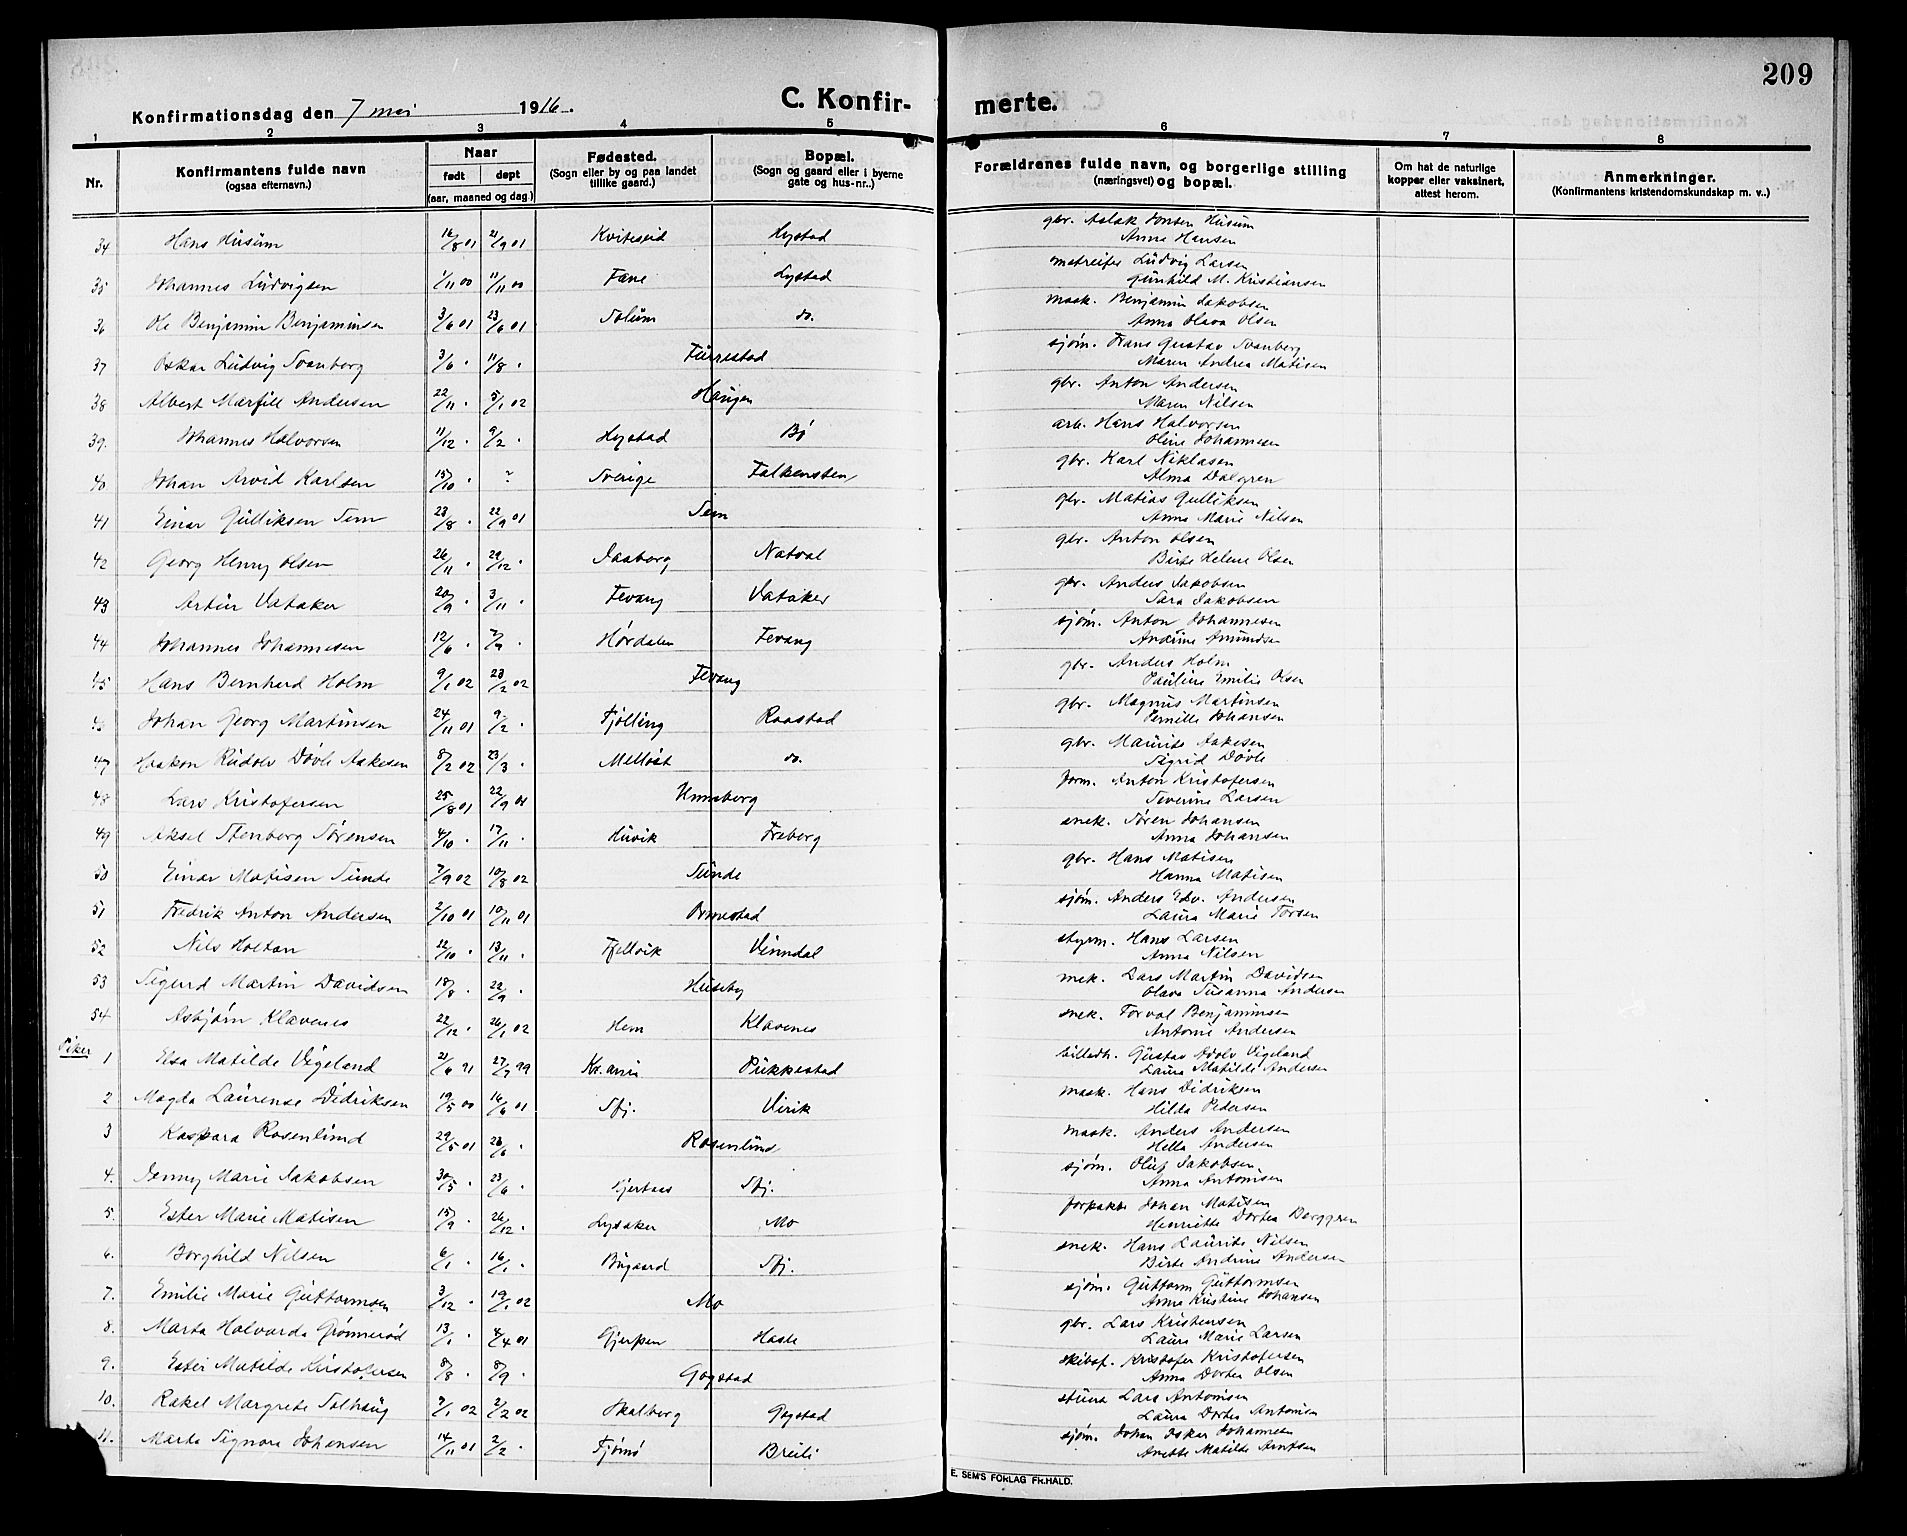 209
Konfirmationsdag den 7 mai 1916.
C. Konfir-
merte.
1 2 3 4 5 6 7 8
Nr.
Konfirmantens fulde navn
(ogsaa efternavn.)
Naar
født døpt
(aar, maaned og dag.)
Fødested.
(Sogn eller by og paa landet
tillike gaard.)
Bopæl.
(Sogn og gaard eller i byerne
gate og hus-nr..)
Forældrenes fulde navn, og borgerlige stilling
(næringsvei) og bopæl.
Om hat de naturlige
kopper eller vaksinert,
attest herom.
Anmerkninger.
(Konfirmantens kristendomskundskap m. v..)
34 Hans Husum 16/8 01 21/9 01 Kviteseid Lystad gbr. Aslak Jonsen Husum
Anne Hansen
35 Johannes Ludvigsen 1/11 00 11/11 00 Fane Lystad Ludvig Larsen
Gunhild M. Kristiansen
36 Ole Benjamin Benjaminsen 3/6 01 23/6 01 Solum do. mask. Benjamin Jakobsen
Anna Olava Olsen
37 Oskar Ludvig Svanberg 3/6 . 11/8 . Furrestad sjøm. Frans Gustav Svanberg
Maren Andrea Matisen
38 Albert Marfill Andersen 22/11 . 5/1 02 Haugen gbr. Anton Andersen
Maren Nilsen
39. Johannes Halvorsen 11/12 . 9/2 . Lystad Bø arb. Hans Halvorsen
Oline Johannesen
40 Johan Arvid Karlsen 15/10 . ? Sverige Falkensten gbr. Karl Niklasen
Alma Dalgren
41 Einar Gulliksen Sem 23/8 . 22/9 01 Sem gbr. Matias Gulliksen
Anna Marie Nilsen
42 Georg Henry Olsen 26/11 . 29/12 . Natval gbr. Anton Olsen
Birte Helene Olsen
43 Artur Vataker 20/9 . 3/11 . Fevang Vataker gbr. Anders Jakobsen
Sara Jakobsen
44 Johannes Johannesen 12/6 . 7/9 . Hørdalen Fevang sjøm. Anton Johannesen
Andrine Amundsen
45 Hans Bernhard Holm 9/1 02 23/2 02 Fevang gbr. Anders Holm
Pauline Emilie Olsen
46 Johan Georg Martinsen 24/11 01 9/2 . Fjølling Raastad gbr. Magnus Martinsen
Pernille Johansen
47 Haakon Rudolv Døvle Aakesen 8/2 02 23/3 . Melløst do. gbr. Maurits Aakesen
Sigrid Døvle
48 Lars Kristofersen 25/8 01 22/9 01 Unneberg form. Anton Kristofersen
Severine Larsen
49 Aksel Stenberg Sørensen 4/10 . 17/11 . Huvik Freberg snek. Søren Johansen
Anna Johansen
50 Einar Matisen Sunde 7/9 02 10/8 02 Sunde gbr. Hans Matisen
Hanna Matisen
51 Fredrik Anton Andersen 2/10 01 10/11 01 Ormestad sjøm. Anders Edv. Andersen
Laura Marie Torsen
52 Nils Holtan 22/10 . 13/11 . Fjellvik Vinndal styrm. Hans Larsen
Anna Nilsen
53 Sigurd Martin Davidsen 18/8 . 22/9 . Huseby mek. Lars Martin Davidsen
Olava Susanna Andersen
54 Asbjørn Klavenes 22/12 . 26/1 02 Hem Klavenes snek. Torval Benjaminsen
Antonie Andersen
Piker 1 Elsa Matilde Vigeland 21/6 91 27/7 99 Kr.ania Pukkestad billedh. Gustav Adolv Vigeland
Laura Matilde Andersen
2 Magda Laurense Didriksen 19/5 00 16/6 01 Sfj. Virik mask. Hans Didriksen
Hilda Pedersen
3 Kaspara Rosenlund 29/5 01 23/6 . Rosenlund mask. Anders Andersen
Hella Andersen
4. Jenny Marie Jakobsen 30/5 . 23/6 . Gjertaas Sfj. sjøm. Oluf Jakobsen
Anna Antonisen
5. Ester Marie Matisen 15/9 . 26/12 . Lysaker Mo forpakter Johan Matisen
Henriette Dortea Berggren
6. Borghild Nilsen 6/1 . 16/1 . Bugaard Sfj. snek. Hans Laurits Nilsen
Birte Andrine Andersen
7. Emilie Marie Guttormsen 3/12 . 19/1 02 Mo sjøm. Guttorm Guttormsen
Anna Kristine Johansen
8. Marta Halvarda Grønnerød 13/1 . 4/4 01 Gjerpen Hasle gbr. Lars Kristensen
Laura Marie Larsen
9. Ester Matilde Kristofersen 8/8 . 8/9 . Gogstad skibsf. Kristofer Kristofersen
Anna Dortea Olsen
10. Rakel Margrete Solhaug 7/1 02 2/2 02 Skalberg Gogstad stuert Lars Antonisen
Laura Dortea Antonisen
11. Marta Signora Johansen 14/11 01 2/2 . Tjømø Breili sjøm. Johan Oskar Johannesen
Anette Matilde Arntsen
E. SEM'S FORLAG FR.HALD.